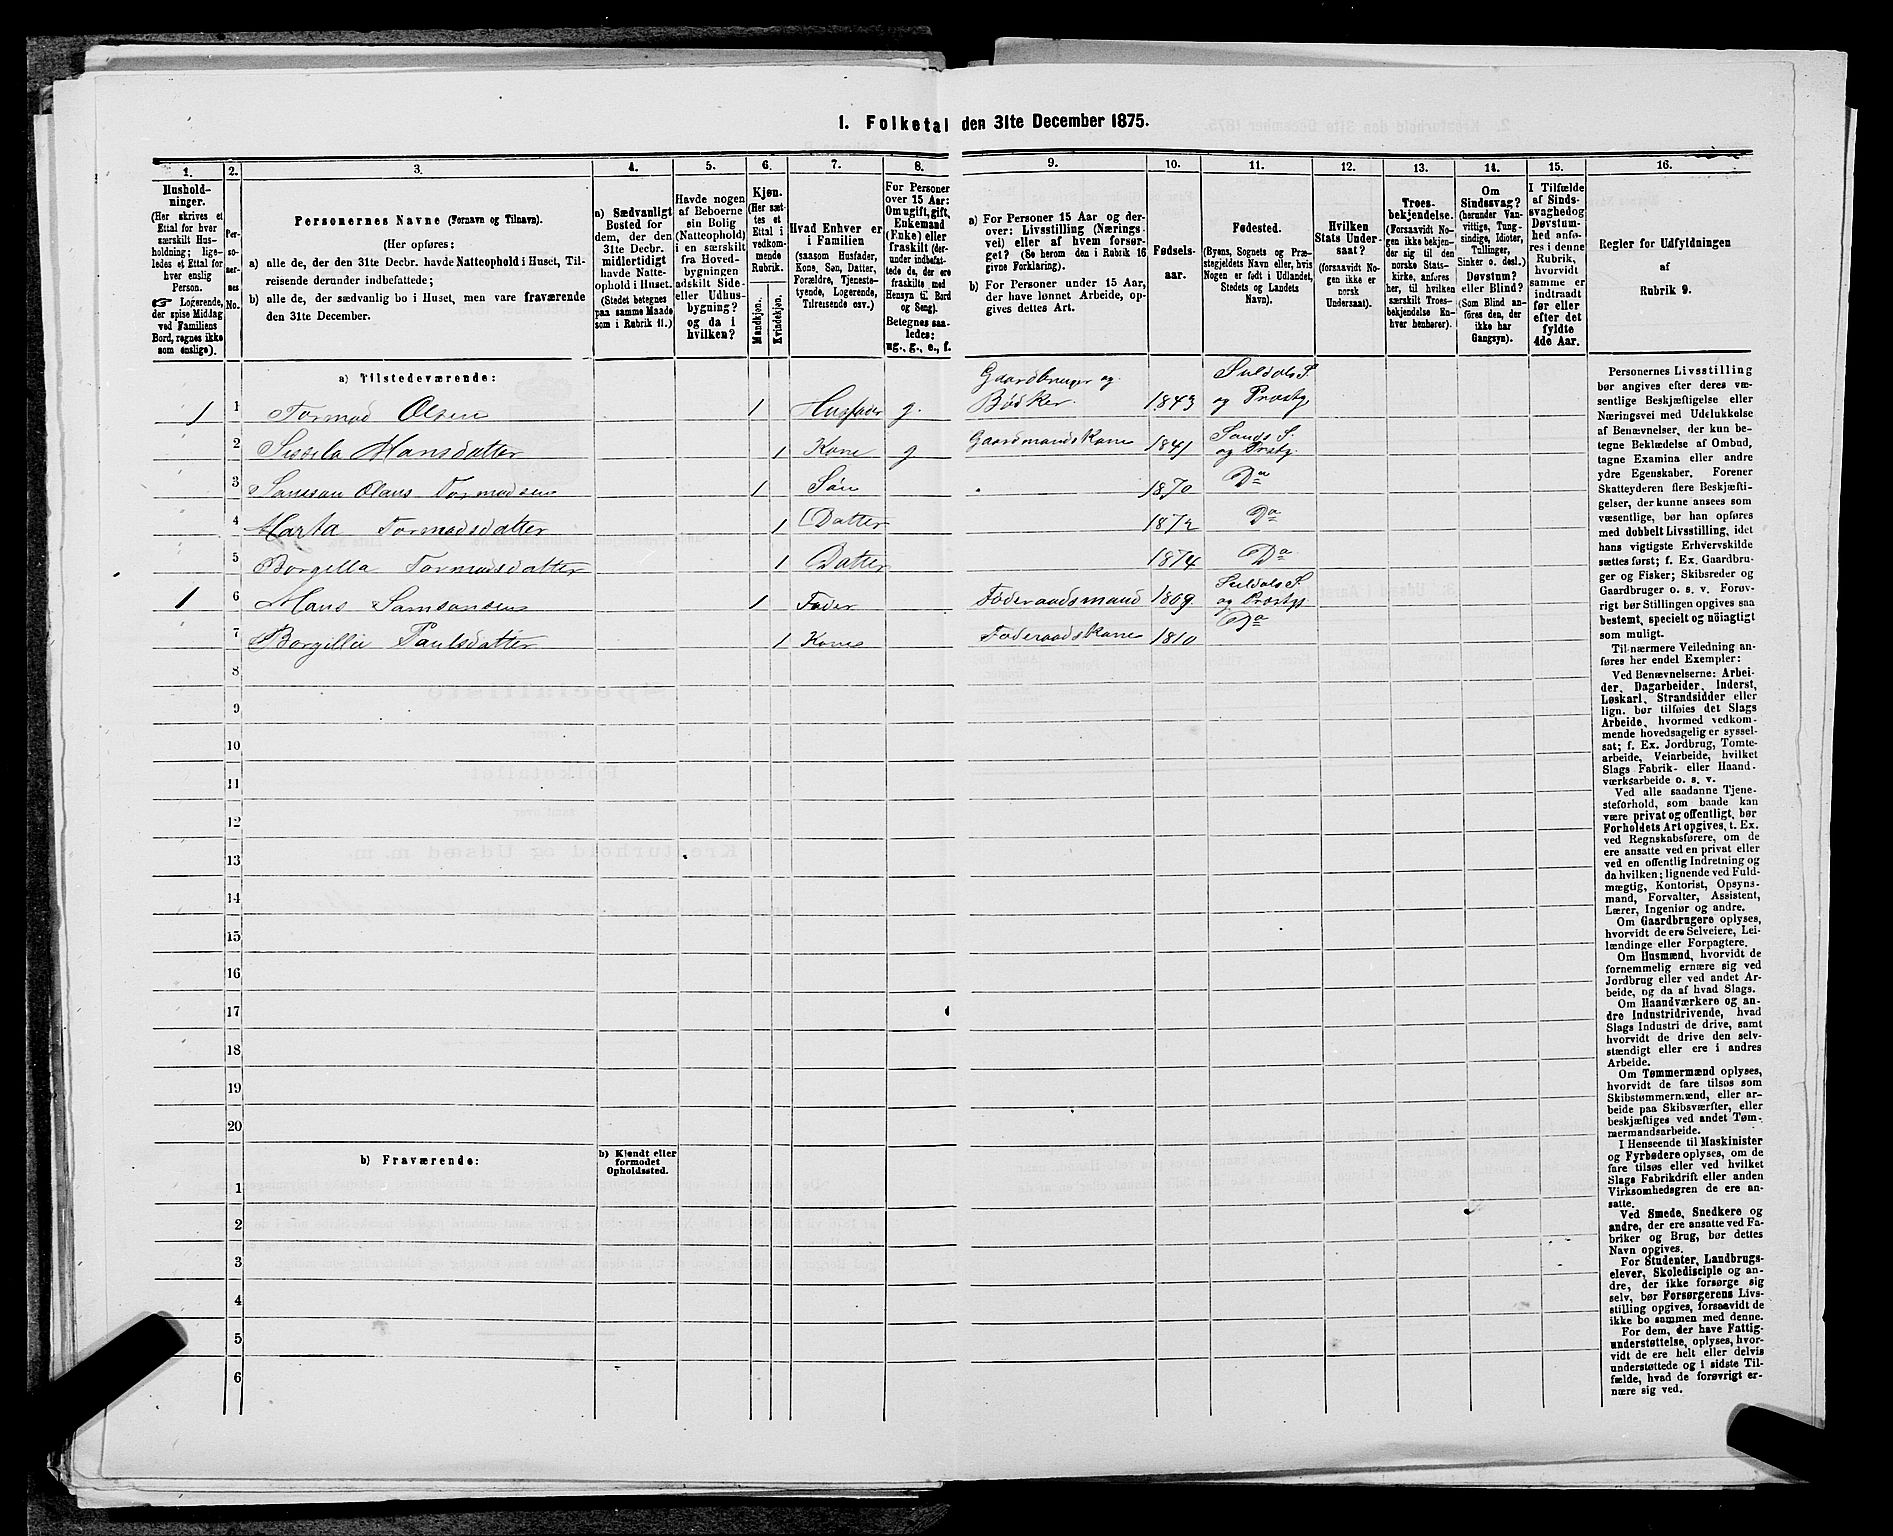 1. Folketal den 31te December 1875.
1. 2. 3. 4. 5. 6. 7. 8. 9. 10. 11. 12. 13. 14. 15. 16.
Hushold-
ninger.
(Her skrives et
Ettal for hver
særskilt Hus-
holdning; lige-
ledes et Ettal for
hver enslig
Person.
☞ Logerende,
der spise Middag
ved Familiens
Bord, regnes ikke
som enslige).
Per-
so-
ner-
nes
No.
Personernes Navne (Fornavn og Tilnavn).
(Her opføres:
a) alle de, der den 31te Decbr. havde Natteophold i Huset, Til-
reisende derunder indbefattede;
b) alle de, der sædvanlig bo i Huset, men vare fraværende
den 31te December.
a) Sædvanligt
Bosted for
dem, der den
31te Decbr.
midlertidigt
havde Natte-
ophold i Huset.
(Stedet betegnes
paa samme Maade
som i Rubrik 11.)
Havde nogen
af Beboerne
sin Bolig
(Natteophold)
i en særskilt
fra Hoved-
bygningen
adskilt Side-
eller Udhus-
bygning?
og da i
hvilken?
Kjøn.
(Her sæt-
tes et
Ettal i
vedkom-
mende
Rubrik.
Mandkjøn.
Kvindekjøn.
Hvad Enhver er
i Familien
(saasom Husfader,
Kone, Søn, Datter,
Forældre, Tjeneste-
tyende, Logerende,
Tilreisende osv.)
For Personer
over 15 Aar:
Om ugift, gift,
Enkemand
(Enke) eller
fraskilt (der-
under indbefat-
tede de, der ere
fraskilte med
Hensyn til Bord
og Seng).
Betegnes saa-
ledes:
ug., g., e., f.
a) For Personer 15 Aar og der-
over: Livsstilling (Nærings-
vei) eller af hvem forsør-
get? (Se herom den i Rubrik 16
givne Forklaring).
b) For Personer under 15 Aar,
der have lønnet Arbeide, op-
gives dettes Art.
Fødsels-
aar.
Fødested.
(Byens, Sognets og Præ-
stegjeldets Navn eller, hvis
Nogen er født i Udlandet,
Stedets og Landets
Navn).
Hvilken
Stats Under-
saat?
(forsaavidt No-
gen ikke er
norsk
Undersaat).
Troes-
bekjendelse.
(Forsaavidt No-
gen ikke bekjen-
der sig til den
norske Stats-
kirke, anføres
her, til hvilken
særskilt Troes-
bekjendelse En-
hver henhører).
Om
Sindssvag?
(herunder Van-
vittige, Tung-
sindige, Idioter,
Tullinger,
Sinker o. desl.)
Døvstum?
eller Blind?
(Som Blind an-
føres den, der
ikke har
Gangsyn).
I Tilfælde
af Sinds-
svaghed og
Døvstum-
hed anfø-
res i denne
Rubrik,
hvorvidt
samme er
indtraadt
før eller
efter det
fyldte
4de Aar.
Regler for Udfyldningen
af
Rubrik 9.
a) Tilstedeværende:
1 1 Tormod Olsen 1 Husfader g. Gaardbruger og Bødker. 1843 Suldals S. og Præstg
2 Sissela Hansdatter 1 Kone g Gaardmandskone 1841 Sands S. og Præstg.
3 Samson Olaus Tormodsen 1 Søn 1870 Do
4 Marta Tormodsdatter 1 Datter 1872 Do
5 Borgilla Tormodsdatter 1 Datter 1874 Do
1 6 Hans Samsonsen 1 Fader Føderaadsmand 1809. Suldals S. og Præstg.
7 Borgilla Paulsdatter 1 Kone Føderaadskone 1810 Do
8
9
10
11
12
13
14
15
16
17
18
19
20
b) Fraværende:
b) Kjendt eller
formodet
Opholdssted.
1
2
3
4
5
6
Personernes Livsstilling
bør angives efter deres væ-
sentlige Beskjæftigelse eller
Næringsvei med Udelukkelse
af Benævnelser, der kun be-
tegne Beklædelse af Ombud,
tagne Examina eller andre
ydre Egenskaber. Forener
Skatteyderen flere Beskjæfti-
gelser, der kunne ansees som
væsentlige, bør han opføres
med dobbelt Livsstilling, idet
hans vigtigste Erhvervskilde
sættes først; f. Ex. Gaardbru-
ger og Fisker; Skibsreder og
Gaardbruger o. s. v. Forøv-
rigt bør Stillingen opgives saa
bestemt, specielt og nöiagtigt
som muligt.
Til nærmere Veiledning an-
føres her endel Exempler:
Ved Benævnelserne: Arbei-
der, Dagarbeider, Inderst,
Løskarl, Strandsidder eller
lign. bør tilføies det Slags
Arbeide, hvormed vedkom-
mende hovedsagelig er syssel-
sat; f. Ex. Jordbrug, Tomte-
arbeide, Veiarbeide, hvilket
Slags Fabrik- eller Haand-
værksarbeide o. s. v.
Ved alle saadanne Tjene-
steforhold, som baade kan
være privat og offentligt, bør
Forholdets Art opgives, t. Ex.
ved Regnskabsførere, om de
ere ansatte ved en privat eller
ved en offentlig Indretning og
da hvilken; lignende ved Fuld-
mægtig, Kontorist, Opsyns-
mand, Forvalter, Assistent,
Lærer, Ingeniør og andre.
Om Gaardbrugere oplyses,
hvorvidt de ere Selveiere, Lei-
lændinge eller Forpagtere.
Om Husmænd, hvorvidt de
fornemmelig ernære sig ved
Jordbrug eller ved andet Ar-
beide, og da af hvad Slags.
Om Haandværkere og an-
dre Industridrivende, hvad
Slags Industri de drive, samt
hvorvidt de drive den selv-
stændigt eller ere i andres
Arbeide.
Om Tømmermænd oplyses,
hvorvidt de fare tilsøs som
Skibstømmermænd, eller ar-
beide paa Skibsværfter, eller
beskjæftiges ved andet Tøm-
mermandsarbeide.
I Henseende til Maskinister
og Fyrbødere oplyses, om de
fare tilsøs eller ved hvilket
Slags Fabrikdrift eller anden
Virksomhedsgren de ere an-
satte.
Ved Smede, Snedkere og
andre, der ere ansatte ved Fa-
briker og Brug, bør dettes
Navn opgives.
For Studenter, Landbrugs-
elever, Skoledisciple og an-
dre, der ikke forsørge sig
selv, bør Forsørgerens Livs-
stilling opgives, forsaavidt de
ikke bo sammen med denne.
For dem, der have Fattig-
understøttelse, oplyses, hvor-
vidt de ere helt eller delvis
understøttede og i sidste Til-
fælde, hvad de forøvrigt er-
nære sig ved.